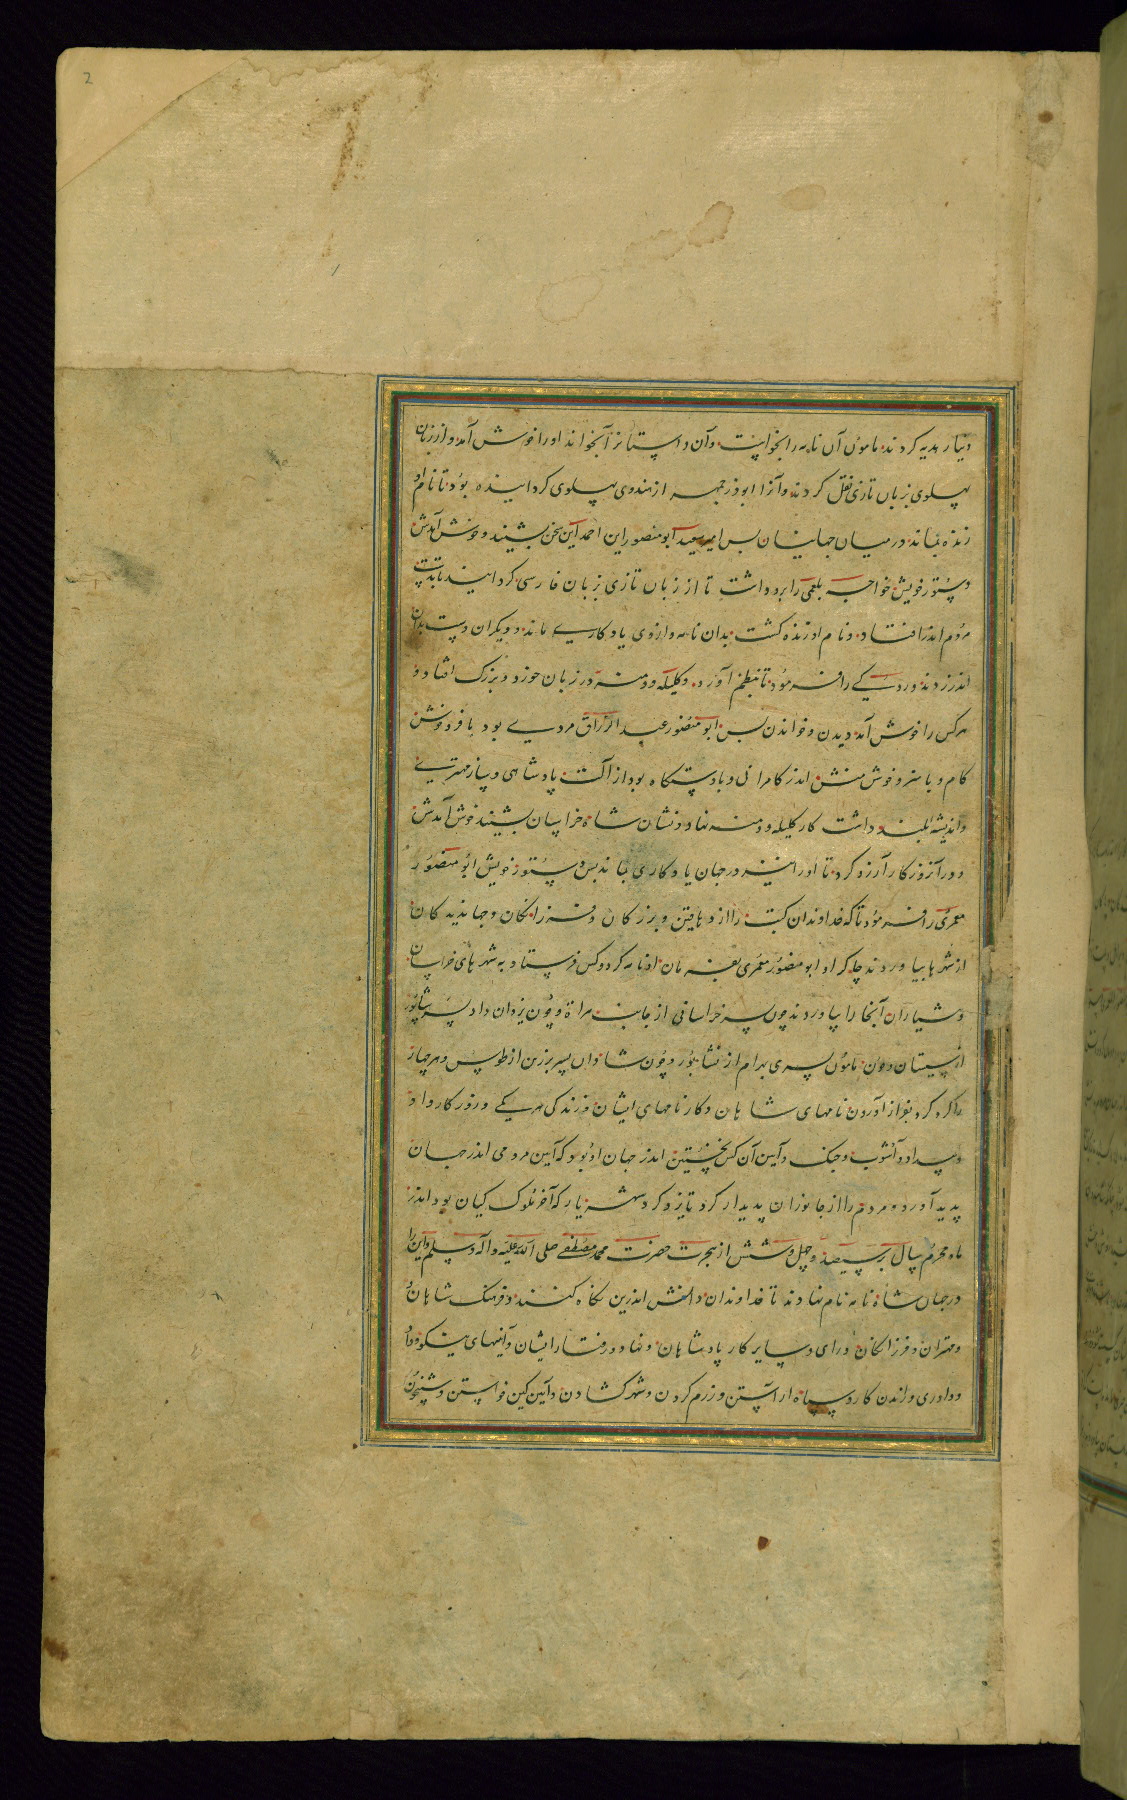 2
دینار هدیه کردند مامون آن نامه را بخواست و آن داستانرا بخواند او را خوش آمد و از زبان
پهلوی بزبان تازی نقل کردند و آنرا ابوذرجمهر از هندوی پهلوی گردانیده بود تا نام او
زنده بماند در میان جهانیان پس امیر سعید ابو منصور این احمد این سخن بشنید و خوش آمدش
دستور خویش خواجه بلعمی را بر و داشت تا از زبان تازی بزبان فارسی گردانید تا بدست
مردم اندر افتاد و نام او زنده گشت بدان نامه و از وی یادگاری ماند و دیگران دست بدان
اندر زدند و رودکی را فرمود تا بنظم آورد و کلیله و دمنه در زبان خورد و بزرگ افتاد و
هر کس را خوش آمد دیدن و خواندن پس ابو منصور عبد الرزاق مردی بود با فر و منش
کام و با هنر و خوش منش اندر کامرانی و با دستگاه بود از آلت پادشاهی و ساز مهتری
و اندیشه بلند داشت کار کلیله و دمنه نهاد و نشان شاه خراسان بشنید خوش آمدش
و در آن روزگار آرزو کرد تا او را نیز در جهان یادگاری بماند پس دستور خویش ابو منصور
معمری را فرمود تا که خداوندان کتب را از دهاقین و بزرگان و فرزانگان و جهاندیدگان
از شهرها بیاوردند چاکر او ابو منصور معمری بفرمان او نامه کرد و کس فرستاد به شهرهای خراسان
و هشیاران آنجا را بیاوردند چون پسر خراسانی از جانب هراة و چون یزدان داد پسر شاپور
از سیستان و چون مامون پسری بهرام از نشابور و چون شادان پسر برزین از طوس و هر چهار
را گرد کرد بفراز آوردن نامهای شاهان و کارنامهای ایشان و زندگی هر یکی و روزگار داد و
و بیداد و آشوب و جنگ و آیین آن کس نخستین اندر جهان او بود که آیین مردمی اندر جهان
پدید آورد و مردم را از جانوران پدیدار کرد تا یزدکرد شهریار که آخر ملوک کیان بود اندر
ماه محرم سال بر سیصد و چهل و شش از هجرت حضرت محمد مصطفی صلی الله علیه و آله و سلم و این را
در جهان شاه نامه نام نهادند تا خداوندان دانش اندرین نگاه کنند و فرهنگ شاهان و
و مهتران و فرزانگان و رای و سایر کار پادشاهان و نهاد و رفتار ایشان و آیینهای نیکو و داد
و داوری و راندن کار و سپاه آراستن و رزم کردن و شهر گشادن و آیین کین خواستن و شبیخون